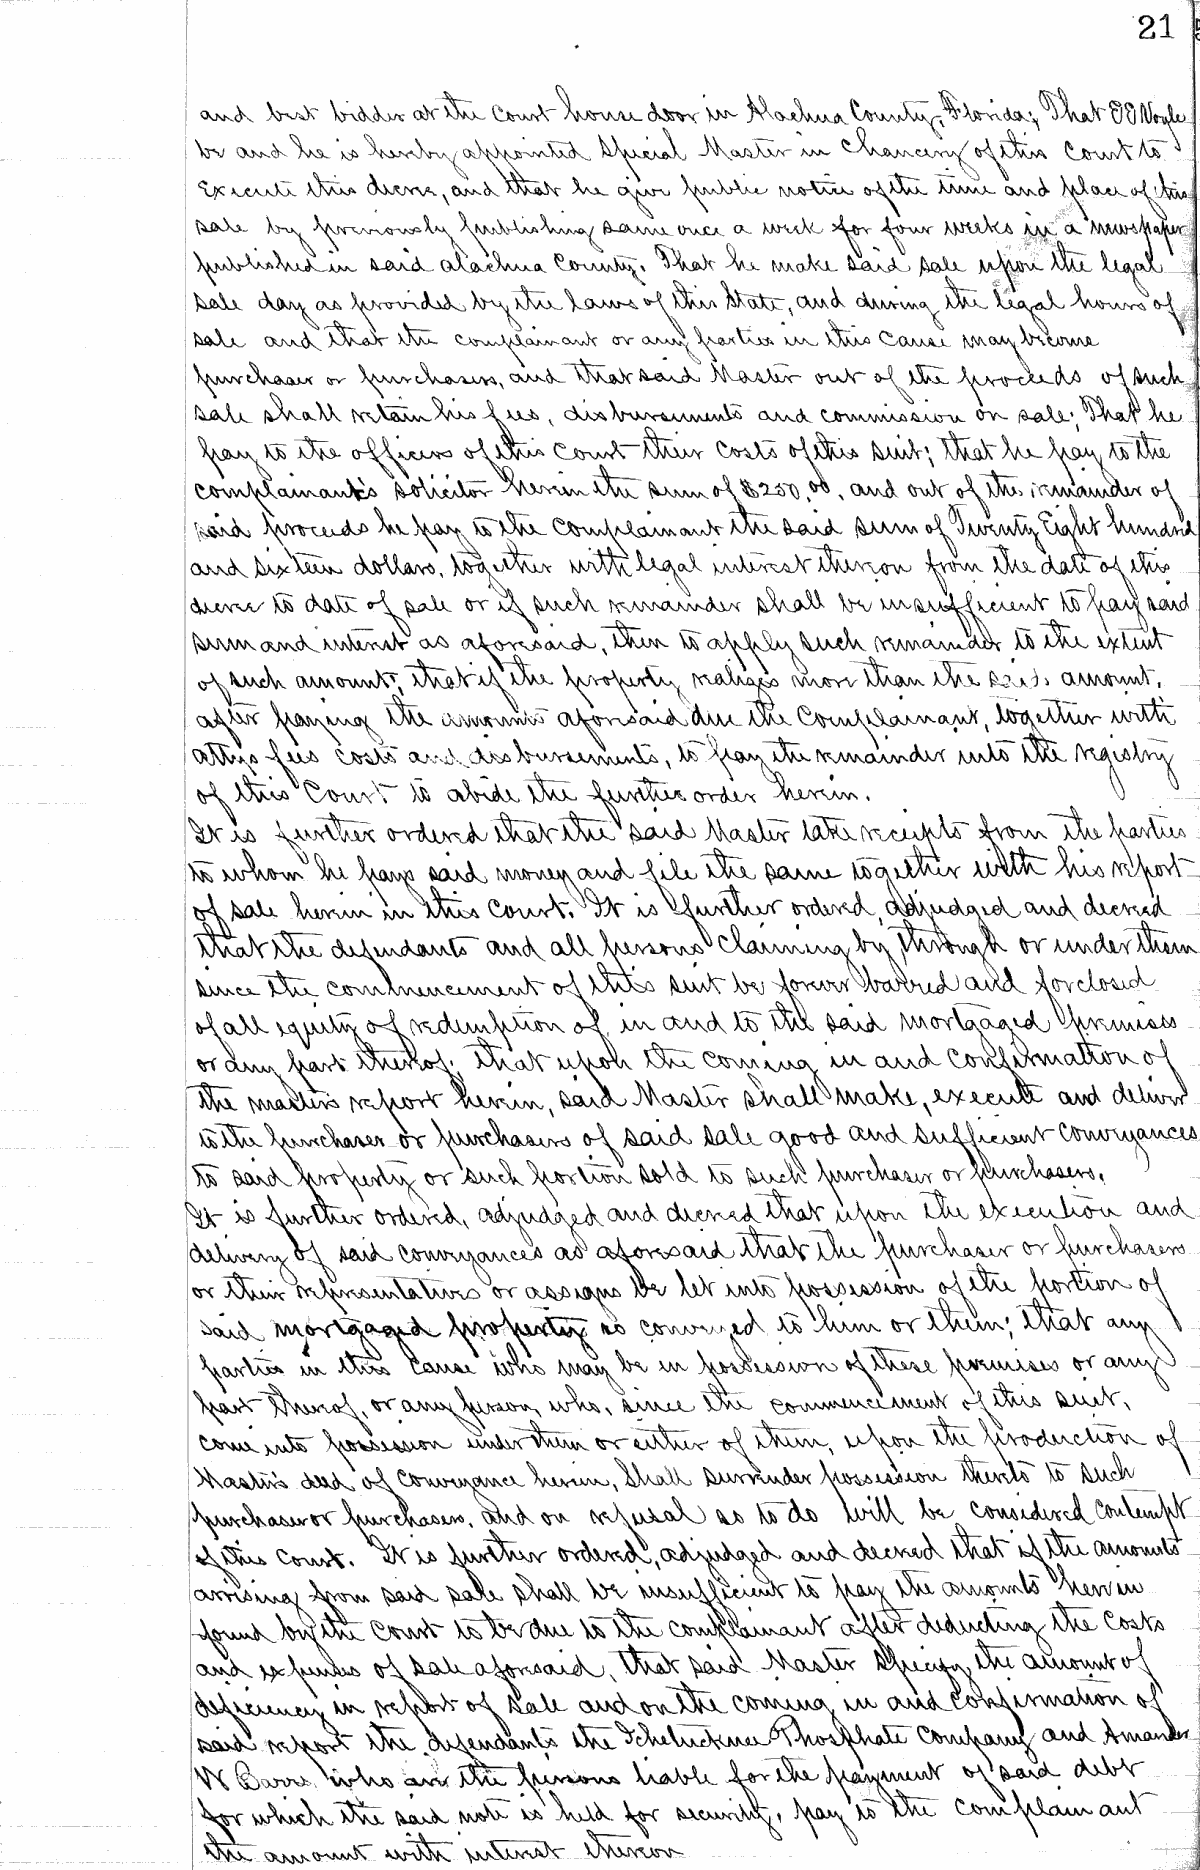 21
and best bidder at the Court house door in Alachua County, Florida; That
be and he is hereby appointed Special Master in Chancery of this Court to
Execute this decree, and that he give public notice of the time and place of this
sale by previously publishing same once a week for four weeks in a newspaper
published in said Alachua County. That he make said sale upon the legal
sale day as provided by the laws of this State, and during the legal hours of
sale and that the complainant or any parties in this cause may become
purchaser or purchasers, and that said Master out of the proceeds of such
sale shall retain his fees, disbursements and commission on sale; That he
pay to the officers of this Court their costs of this suit; that he pay to the
complainant's solicitor herein the sum of $250.00, and out of the remainder of
said proceeds he pay to the Complainant the said sum of Twenty Eight hundred
and sixteen dollars, together with legal interest thereon from the date of this
decree to date of sale or if such remainder shall be insufficient to pay said
sum and interest as aforesaid, then to apply such remainder to the extent
of such amount, that if the property realizes more than the said amount,
after paying the amounts aforesaid due the Complainant, together with
attys fees costs and disbursements, to pay the remainder into the registry
of this Court to abide the further order herein.
It is further ordered that the said Master take receipts from the parties
to whom he pays said money and file the same together with his report
of sale herein in this Court. It is further ordered, adjudged and decreed
that the defendants and all persons claiming by, through or under them
since the commencement of this suit be forever barred and forclosed
of all equity of redemption of, in and to the said mortgaged premises
or any part thereof; that upon the coming in and confirmation of
the masters report herein, said Master shall make, execute and deliver
to the purchaser or purchasers of said sale good and sufficient conveyances
to said property or such portion sold to such purchaser or purchasers.
It is further ordered, adjudged and decreed that upon the execution and
delivery of said conveyances as aforesaid that the purchaser or purchasers
or their representatives or assigns be let into possession of the portion of
said mortgaged property so conveyed to him or them; that any
parties in this cause who may be in possession of these premises or any
part thereof, or any person, who, since the commencement of this suit,
come into possession under them or either of them, upon the production of
Master's deed of Conveyance herein, Shall surrender possession thereto to such
purchaser or purchasers, and on refusal so to do will be considered contempt
of this Court. It is further ordered, adjudged and decreed that if the amounts
arrising from said sale shall be insufficient to pay the amounts herein
found by the Court to be due to the complainant after deducting the Costs
and expenses of sale aforesaid, that said Master specify the amount of
deficiency in report of sale and on the coming in and confirmation of
said report the defendants the Ichetucknee Phosphate Company and Amander
W Barrs who are the persons liable for the payment of said debt
for which the said note is held for security, pay to the complainant
the amount with interest thereon